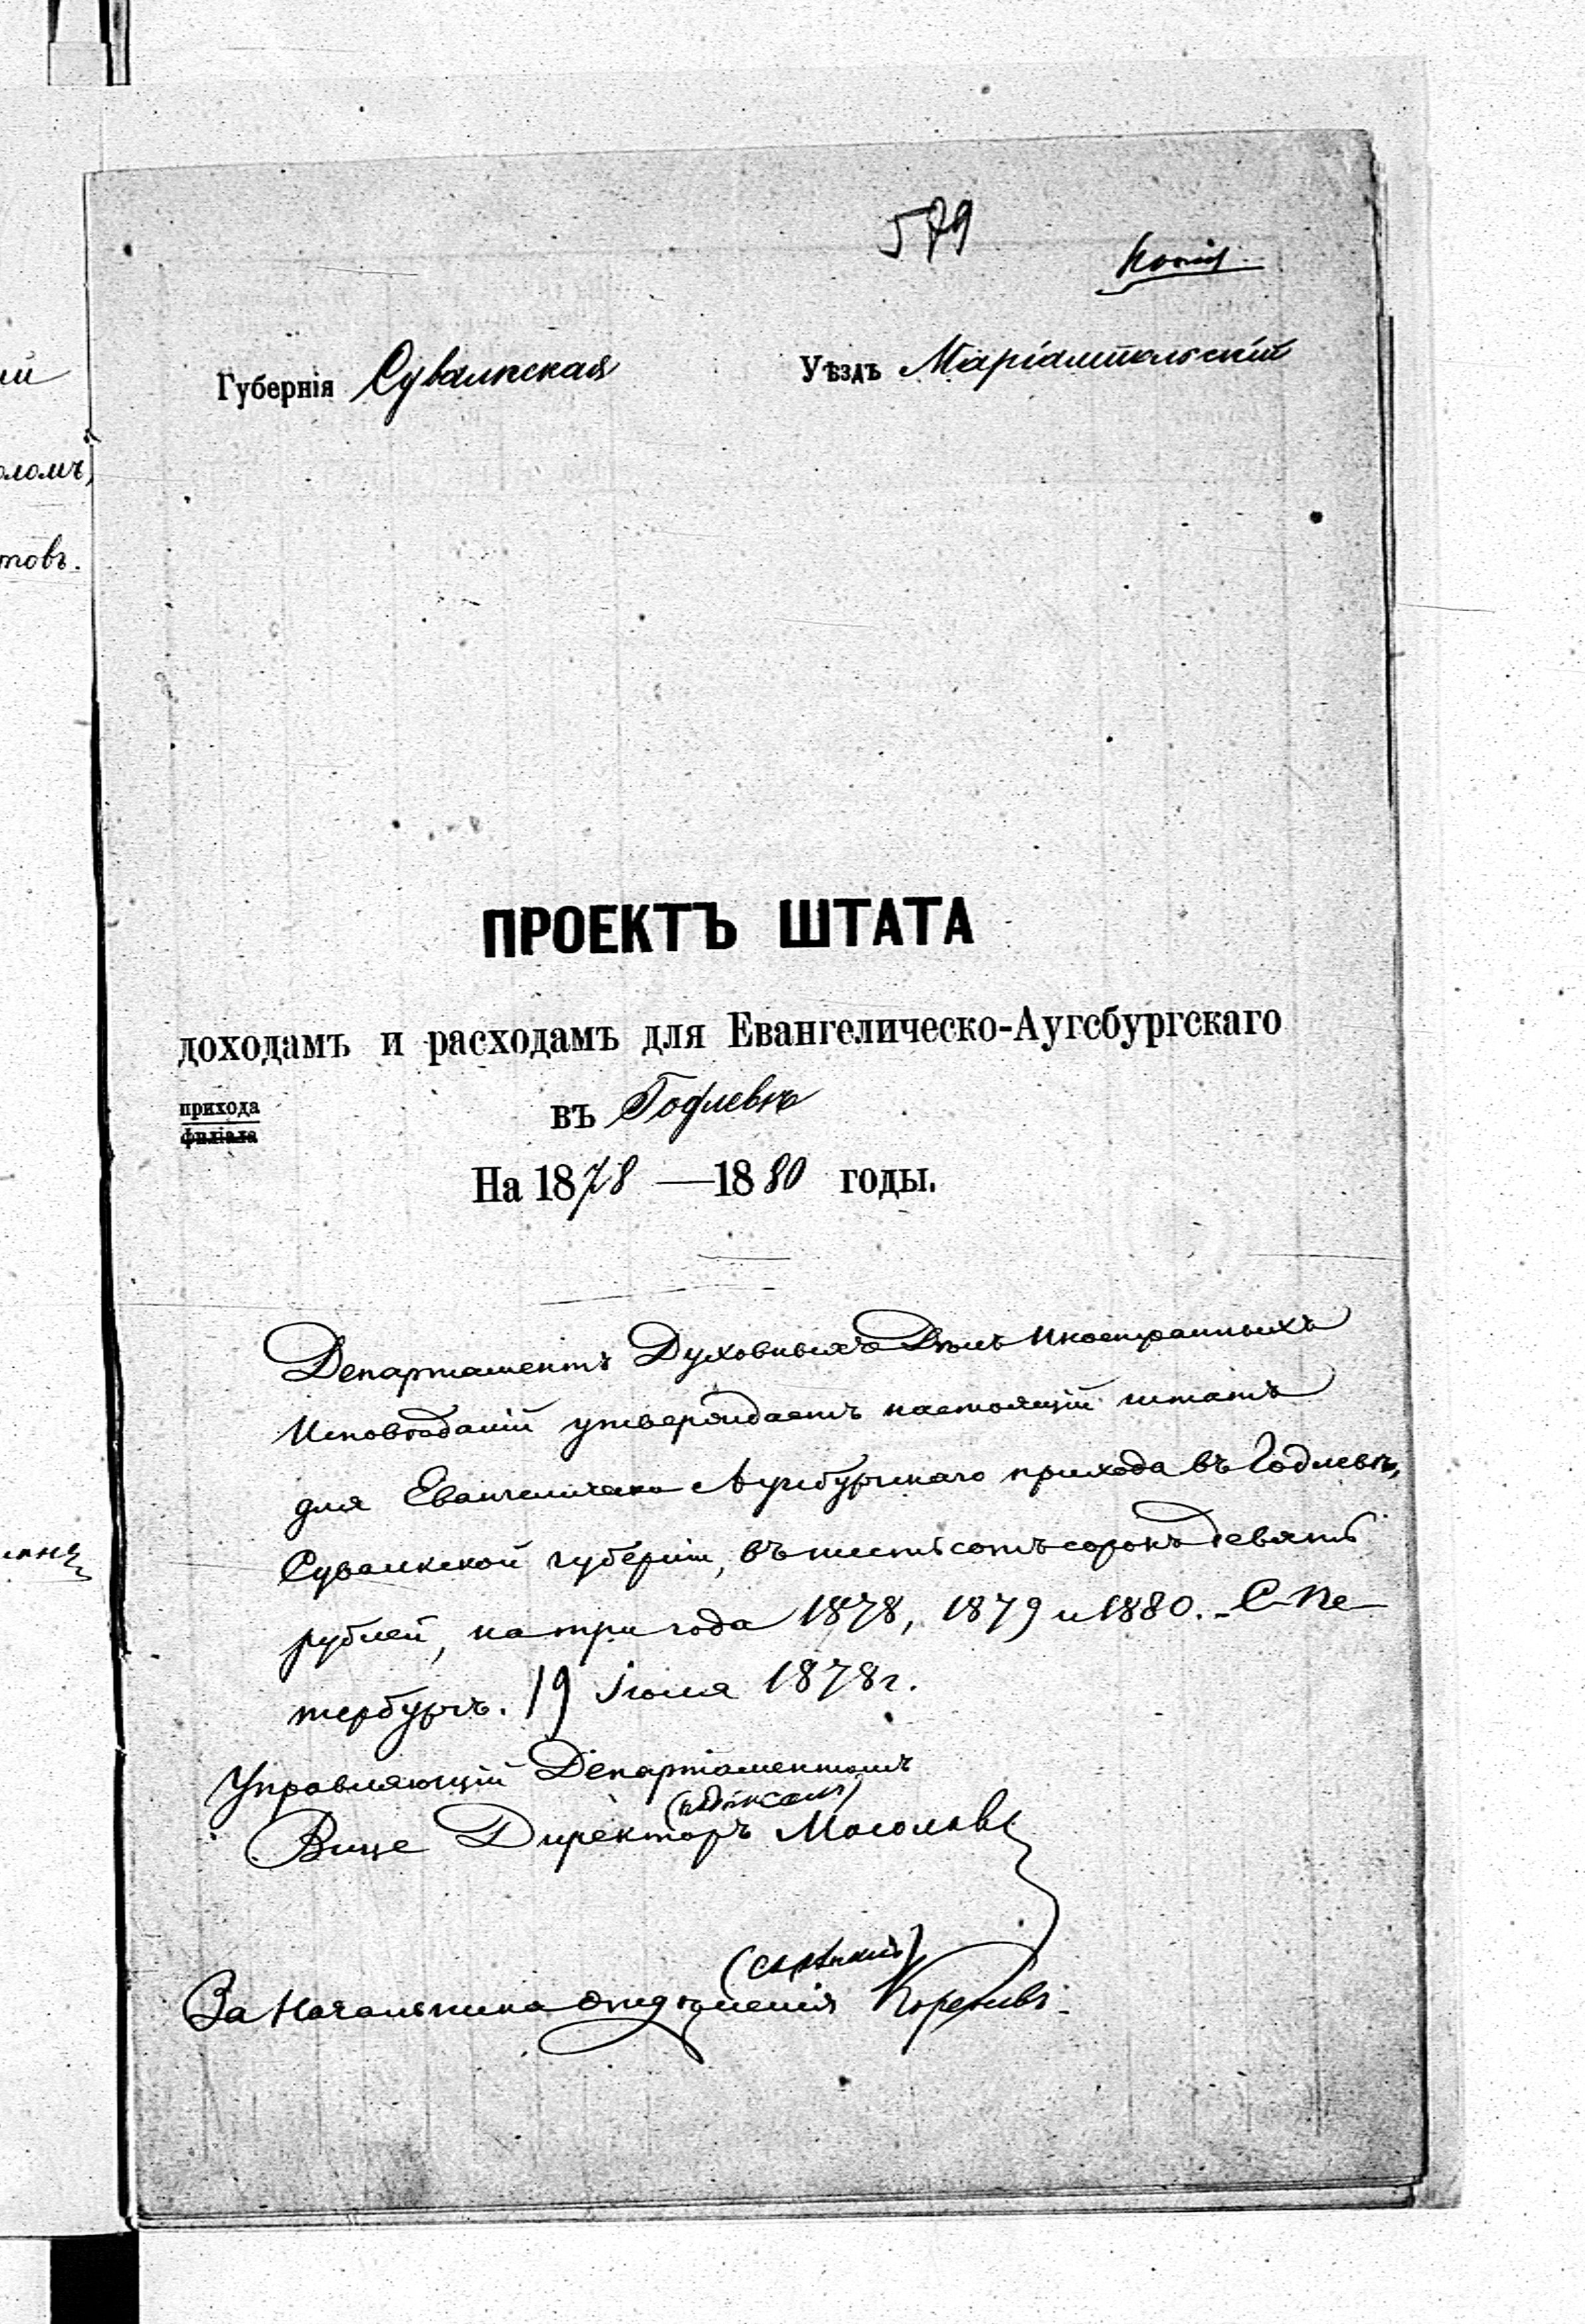 579
Копія.
Губернія Сувалкская Уѣздъ Маріампольскій
ПРОЕКТЪ ШТАТА
доходамъ и расходамъ для Евангелическо-Аугсбургскаго
прихода
филіала
въ Годлевѣ
На 1878 — 1880 годы.
Департаментъ Духовныхъ Дѣлъ Иностранныхъ
Исповѣданій утверждаетъ настоящій штатъ
для Евангелическо Аугсбургскаго прихода въ Годлевѣ,
Сувалкской губерніи, въ шестьсотъ сорокъ девять
рублей, на три года 1878, 1879 и 1880. - С-Пе-
тербургъ. 19 Іюля 1878 г.
Управляющій Департаментомъ
(подписалъ)
Вице Директоръ Мосоловъ
(скрѣпилъ)
За Начальника отдѣленія
ій
оломъ,
товъ.